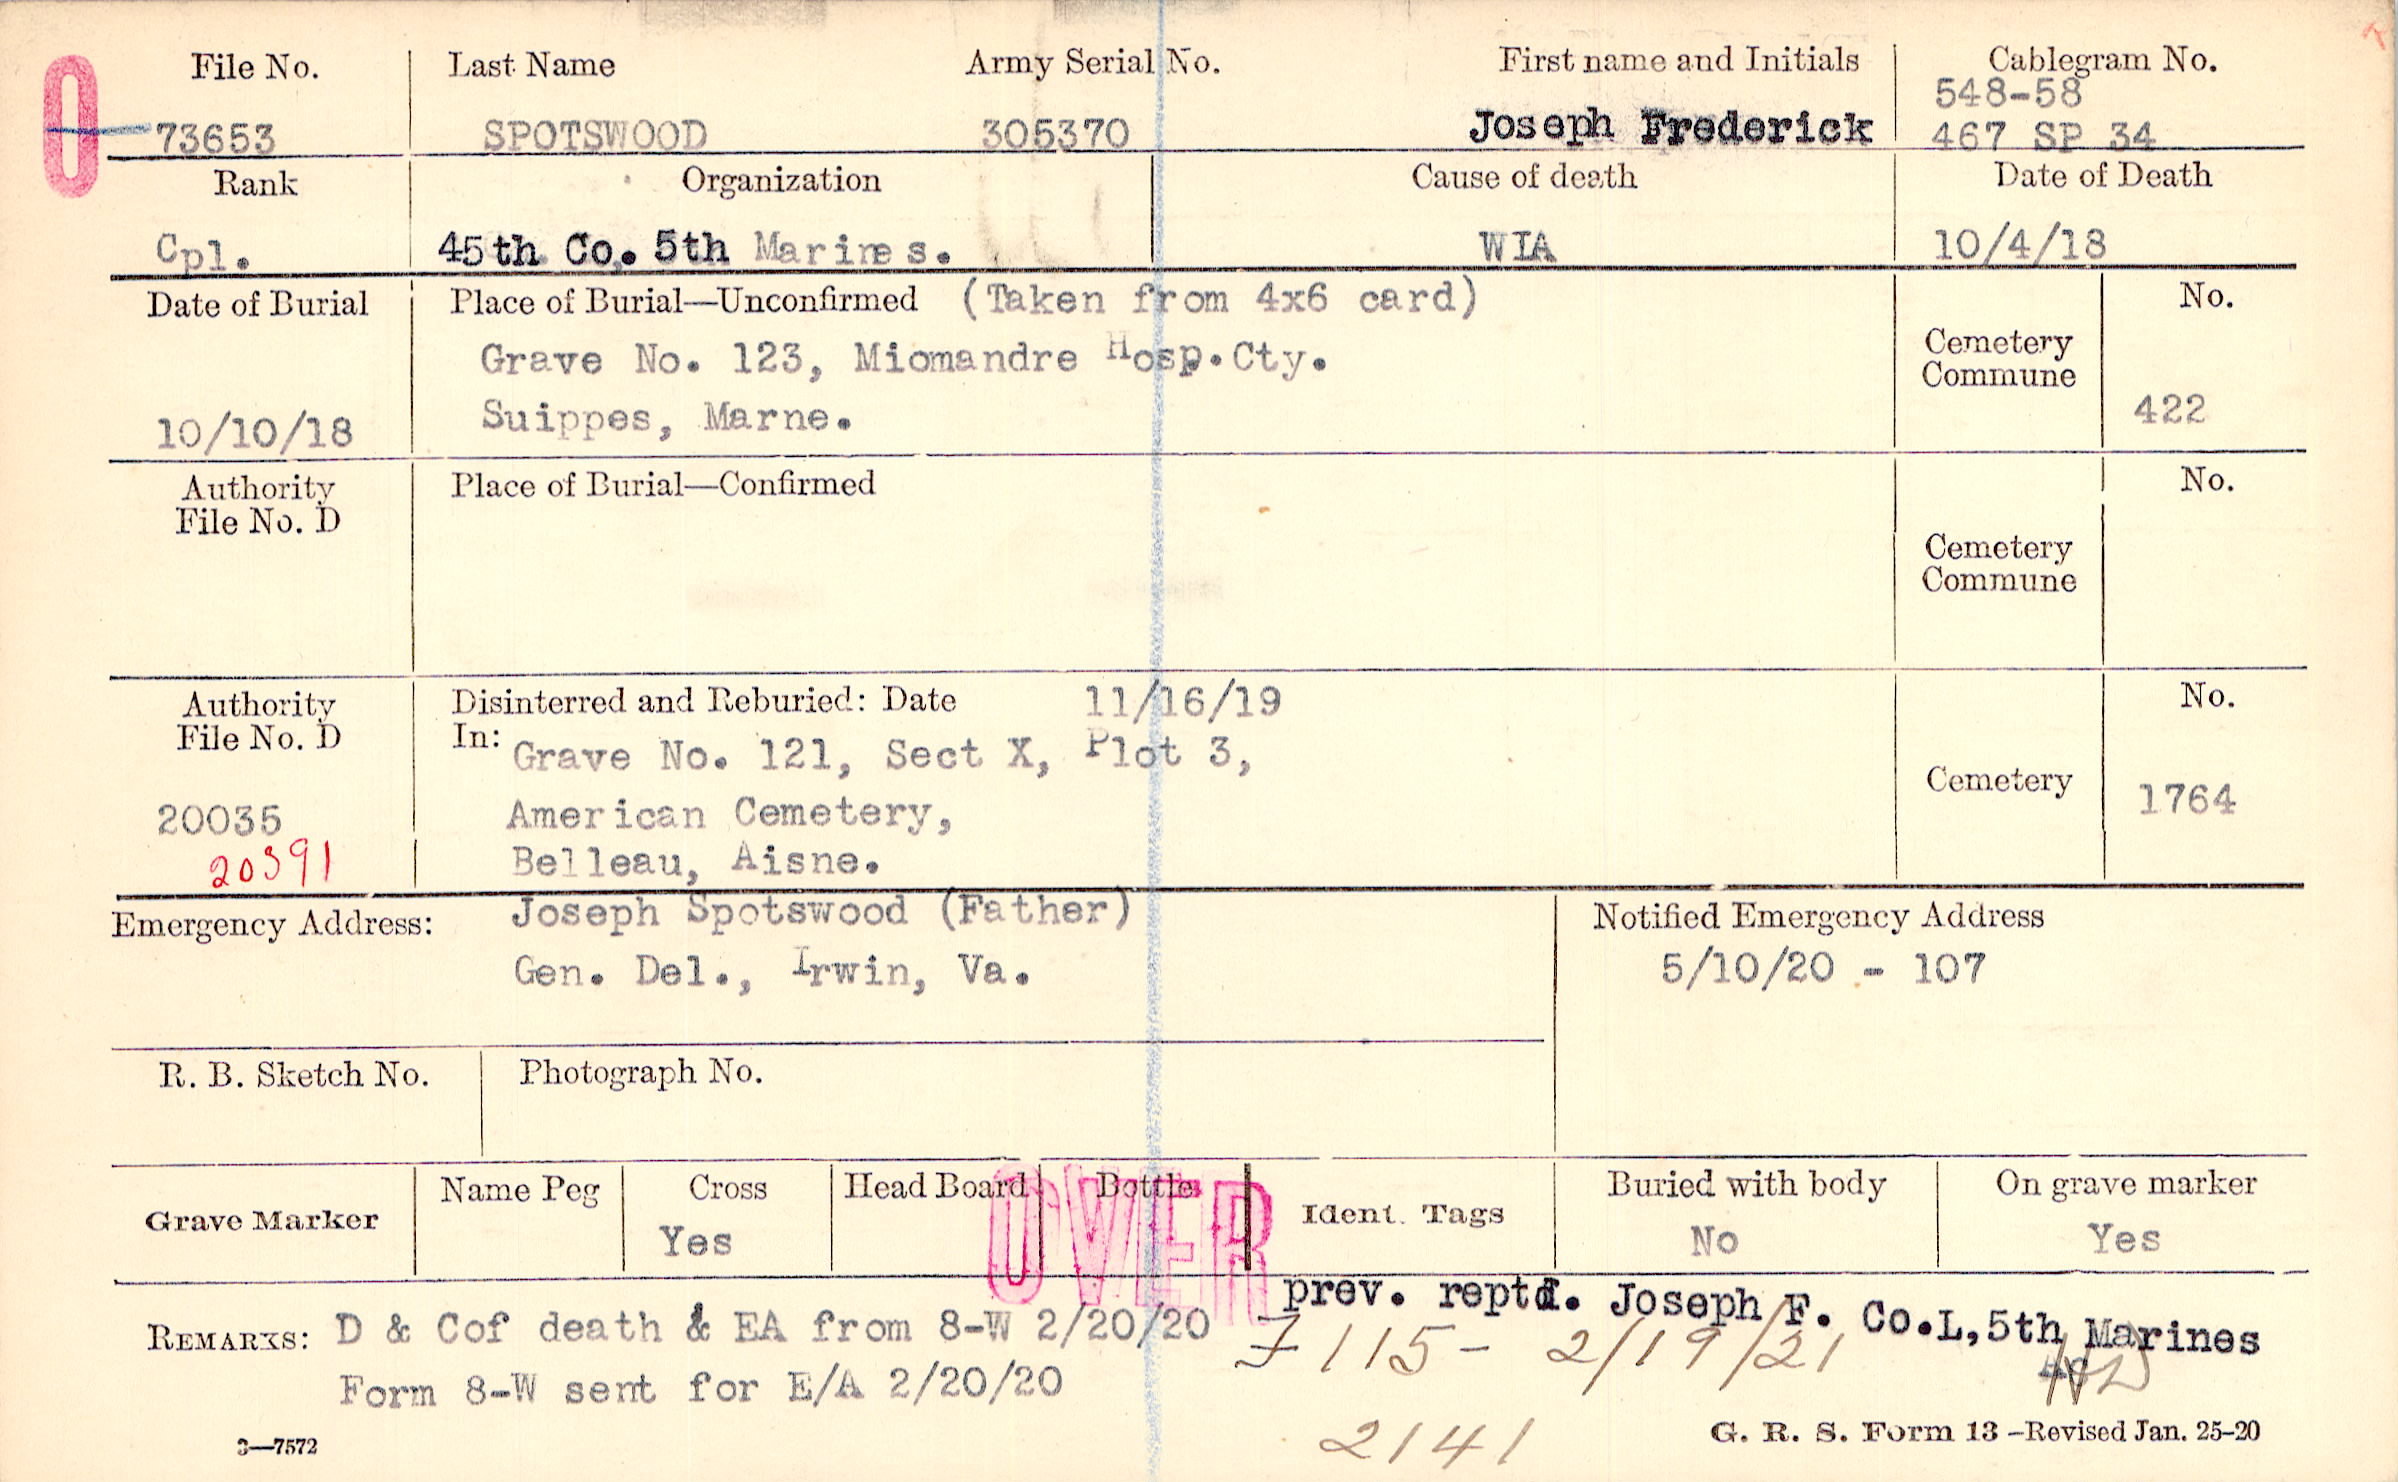 O
File No. Last Name Army Serial No. First name and Initials Cablegram No.
548-58
73653 SPOTSWOOD 305370 Joseph Frederick 467 SP 34
Rank Organization Cause of death Date of Death
Cpl. 45th Co. 5th Marines. WIA 10/4/18
Date of Burial Place of Burial—Unconfirmed (Taken from 4x6 card) No.
Grave No. 123, Miomandre Hosp.Cty. Cemetery
Commune
10/10/18 Suippes, Marne. 422
Authority Place of Burial—Confirmed No.
File No. D
Cemetery
Commune
Authority Disinterred and Reburied: Date 11/16/19 No.
File No. D In: Grave No. 121, Sect X, Plot 3,
Cemetery
20035 American Cemetery, 1764
20391 Belleau, Aisne.
Emergency Address: Joseph Spotswood (Father) Notified Emergency Address
Gen. Del., Irwin, Va. 5/10/20 - 107
R. B. Sketch No. Photograph No.
Grave Marker Name Peg Cross Head Board Bottle Ident. Tags Buried with body On grave marker
Yes No Yes
OVER
prev. reptd. Joseph F. Co.L,5th Marines
REMARKS: D & Cof death & EA from 8-W 2/20/20 F115- 2/19/21
Form 8-W sent for E/A 2/20/20
2141
3—7572 G. R. S. Form 13 –Revised Jan. 25-20